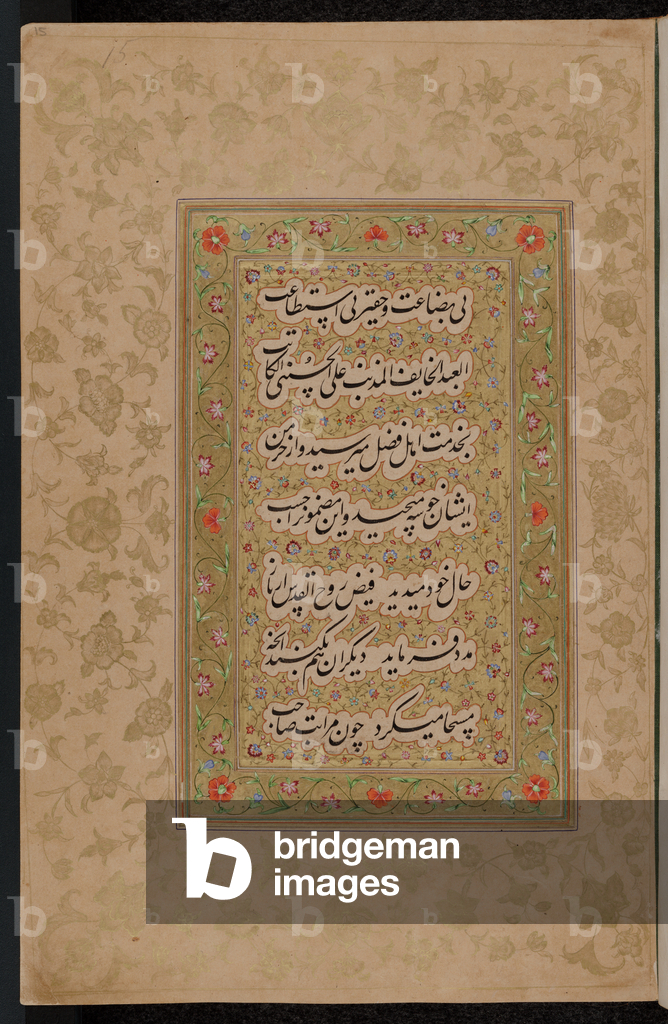 15
15
بی بضاعت و حقیر بی استطاعت
العبد الخایف المذنب علی الحسنی الکاتب
بخدمت اهل فضل میرسید و از خرمن
ایشان خوشه میچید و این مضمونرا حسب
حال خود میدید فیض روح القدس ار باز
مدد فرماید دیگران هم بکنند آنچه
مسیحا میکرد چون مراتب صاحب
bridgeman
images